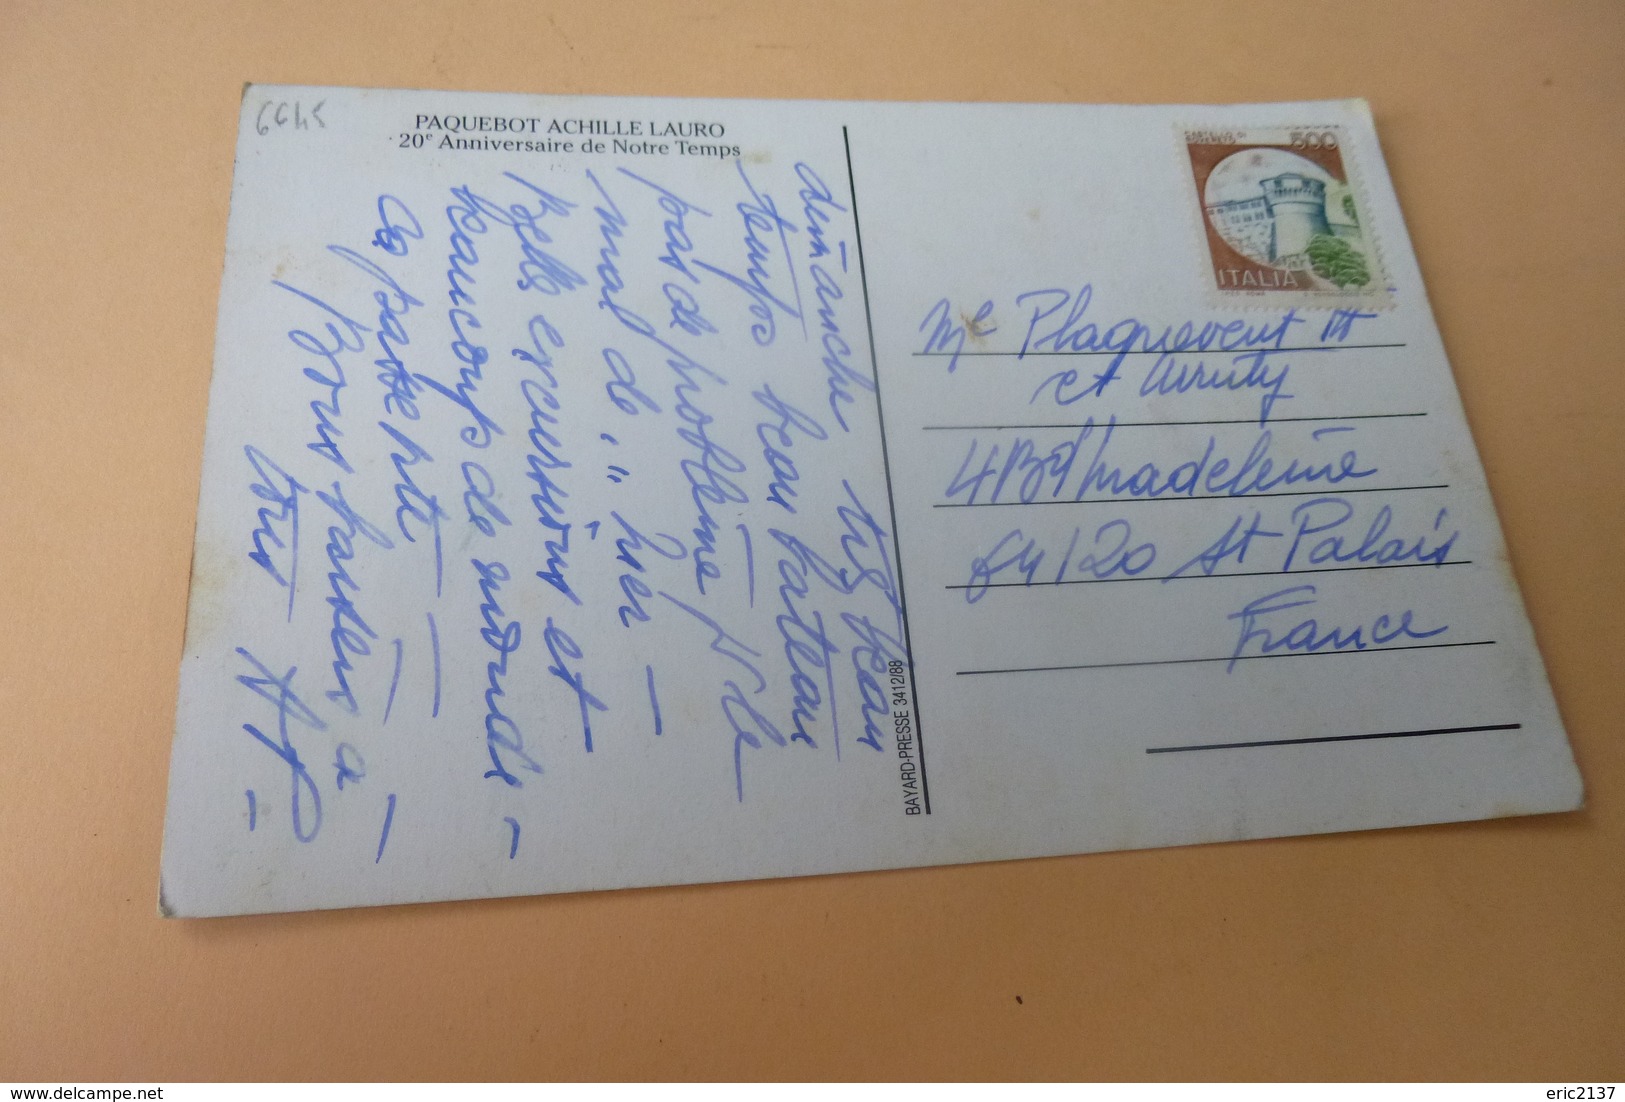 6645
PAQUEBOT ACHILLE LAURO
20e Anniversaire de Notre Temps
dimanche très beau
temps beau bateau
pas de problème de
mal de " mer -
Belle excursions et
beaucoup de monde -
Ça passe vite -
Bons baisers à
tous
BAYARD-PRESSE 3412/88
CASTELLO DI ROVERETO
500
ITALIA
I.P.Z.S. ROMA
Me Plaquevent
et
4 Bd Madeleine
64120 St Palais
France
eric2137